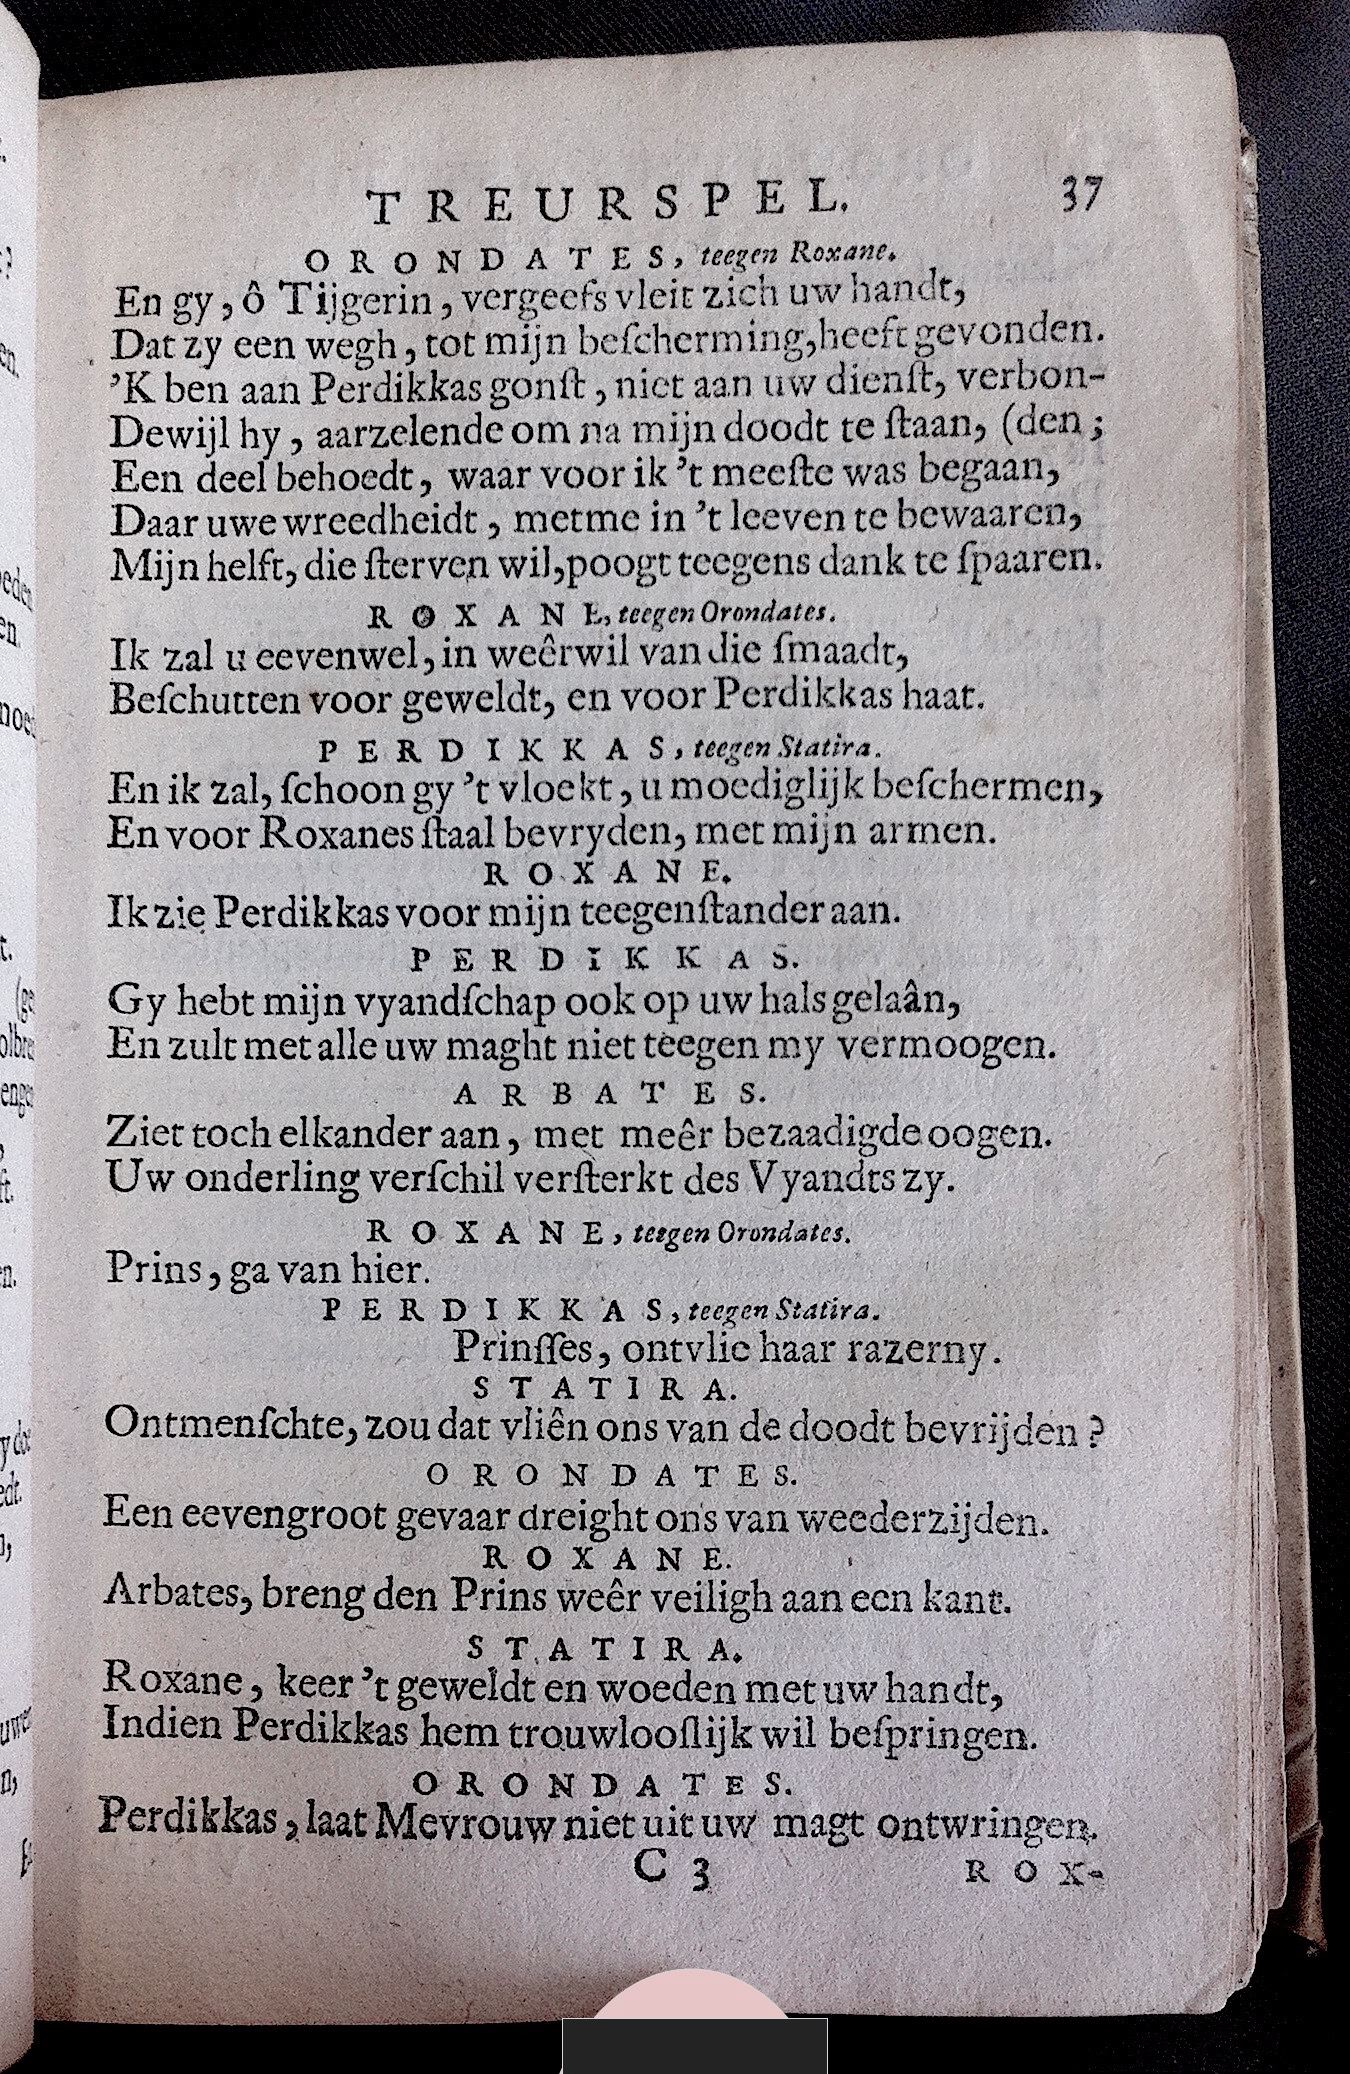 TREURSPEL. 37
ORONDATES, teegen Roxane.
En gy, ô Tijgerin, vergeefs vleit zich uw handt,
Dat zy een wegh, tot mijn beſcherming, heeft gevonden.
’K ben aan Perdikkas gonſt, niet aan uw dienſt, verbon-
Dewijl hy, aarzelende om na mijn doodt te ſtaan, (den;
Een deel behoedt, waar voor ik ’t meeſte was begaan,
Daar uwe wreedheidt, metme in ’t leeven te bewaaren,
Mijn helft, die ſterven wil, poogt teegens dank te ſpaaren.
ROXANE, teegen Orondates.
Ik zal u eevenwel, in weêrwil van die ſmaadt,
Beſchutten voor geweldt, en voor Perdikkas haat.
PERDIKKAS, teegen Statira.
En ik zal, ſchoon gy ’t vloekt, u moediglijk beſchermen,
En voor Roxanes ſtaal bevryden, met mijn armen.
ROXANE.
Ik zie Perdikkas voor mijn teegenſtander aan.
PERDIKKAS.
Gy hebt mijn vyandſchap ook op uw hals gelaân,
En zult met alle uw maght niet teegen my vermoogen.
ARBATES.
Ziet toch elkander aan, met meêr bezaadigde oogen.
Uw onderling verſchil verſterkt des Vyandts zy.
ROXANE, teegen Orondates.
Prins, ga van hier.
PERDIKKAS, teegen Statira.
Prinſſes, ontvlie haar razerny.
STATIRA.
Ontmenſchte, zou dat vliên ons van de doodt bevrijden?
ORONDATES.
Een eevengroot gevaar dreight ons van weederzijden.
ROXANE.
Arbates, breng den Prins weêr veiligh aan een kant.
STATIRA.
Roxane, keer ’t geweldt en woeden met uw handt,
Indien Perdikkas hem trouwlooſlijk wil beſpringen.
ORONDATES.
Perdikkas, laat Mevrouw niet uit uw magt ontwringen.
C 3 ROX-